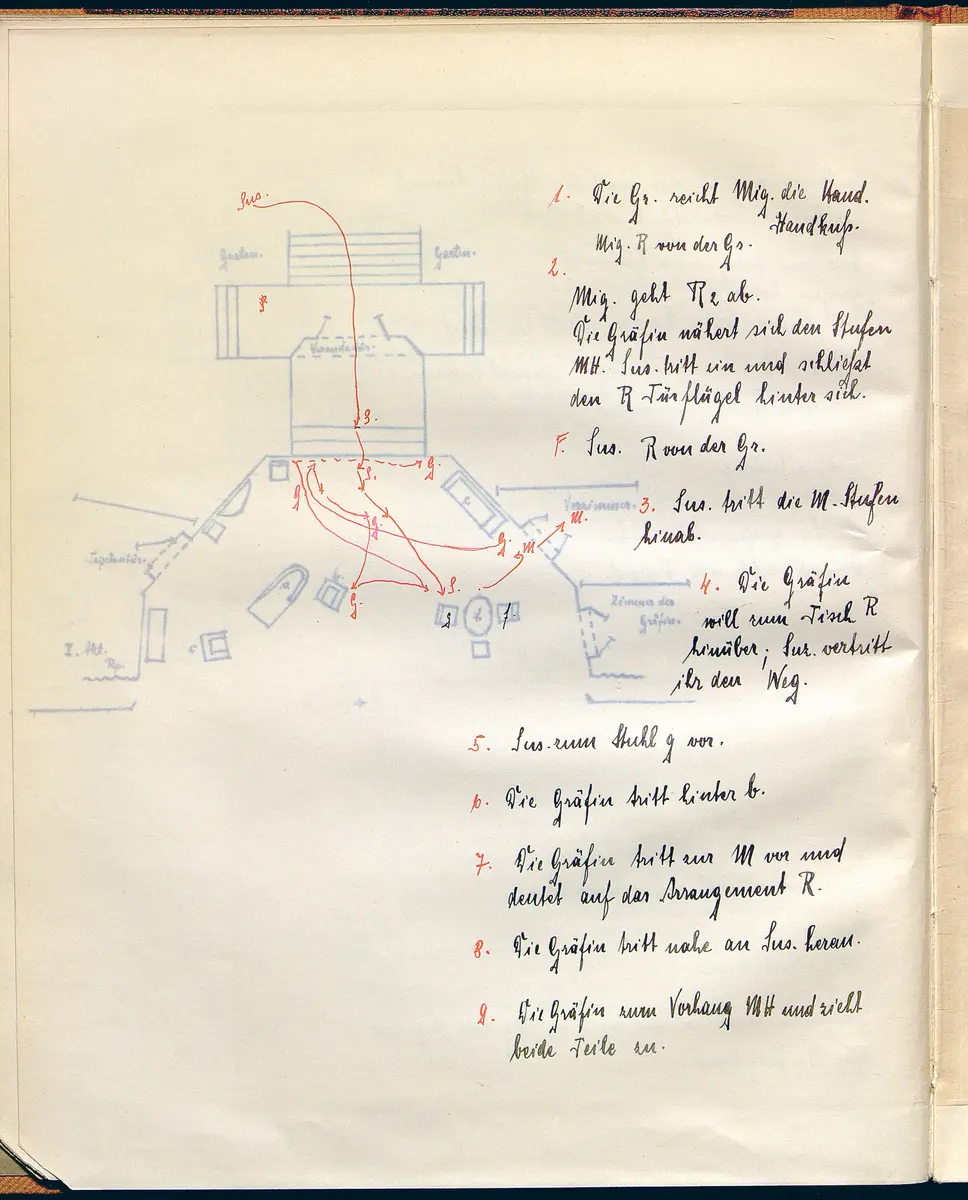 Sus.
Garten.
Garten.
Verandatür.
S.
S.
G.
G.
G.
G.
M.
M.
G.
S.
Vorzimmer.
Tapetentür.
Zimmer der
Gräfin.
a
b
c
g
f
I. Akt.
Rp.
1. Die Gr. reicht Mig. die Hand.
Handkuss.
Mig. R von der Gr.
2.
Mig. geht R 2 ab.
Die Gräfin nähert sich den Stufen
MH. Sus. tritt ein und schließt
den R Türflügel hinter sich.
F. Sus. R von der Gr.
3. Sus. tritt die M-Stufen
hinab.
4. Die Gräfin
will zum Tisch R
hinüber; Sus. vertritt
ihr den Weg.
5. Sus. zum Stuhl g vor.
6. Die Gräfin tritt hinter b.
7. Die Gräfin tritt zur M vor und
deutet auf das Arrangement R.
8. Die Gräfin tritt nahe an Sus. heran.
9. Die Gräfin zum Vorhang MH und zieht
beide Teile zu.